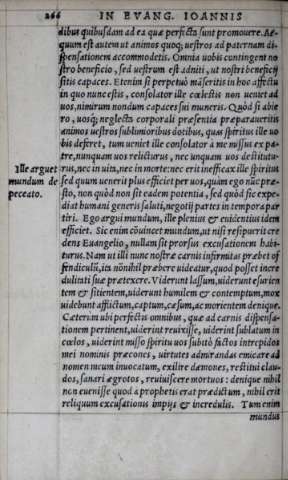 266 IN EVANG. IOANNIS
dibus quibusdam ad ea quæ perfecta sunt promouere. Ae-
quum est autem ut animos quoq; uestros ad paternam di-
spensationem accommodetis. Omnia uobis contingent no
stro beneficio, sed uestrum est adniti, ut nostri beneficij
sitis capaces. Etenim si perpetuò māseritis in hoc affectu
in quo nunc estis, consolator ille cœlestis non ueniet ad
uos, nimirum nondum capaces sui muneris. Quòd si abie
ro, uosq; neglecta corporali præsentia præparaueritis
animos uestros sublimioribus dotibus, quas spiritus ille uo
bis deferet, tum ueniet ille consolator à me missus ex pa-
tre, nunquam uos relicturus, nec unquam uos destitutu-
Ille arguet rus, nec in uita, nec in morte: nec erit inefficax ille spiritus
mundum de sed quum uenerit plus efficiet per uos, quàm ego nūc præ-
peccato. sto, non quòd non sit eadem potentia, sed quòd sic expe-
diat humani generis saluti, negotij partes in tempora par
tiri. Ego argui mundum, ille plenius & euidentius idem
efficiet. Sic enim cōuincet mundum, ut nisi resipuerit cre
dens Euangelio, nullam sit prorsus excusationem habi-
turus. Nam ut illi nunc nostræ carnis infirmitas præbet of
fendiculū, ita nōnihil præbere uideatur, quod possit incre
dulitati suæ prætexere. Viderunt lassum, uiderunt esurien
tem & sitientem, uiderunt humilem & contemptum, mox
uidebunt afflictum, captum, cæsum, ac morientem denique.
Cæterùm ubi perfectis omnibus, quæ ad carnis dispensa-
tionem pertinent, uiderint reuixisse, uiderint sublatum in
cœlos, uiderint misso spiritu uos subitò factos intrepidos
mei nominis præcones, uirtutes admirandas emicare ad
nomen meum inuocatum, exilire dæmones, restitui clau-
dos, sanari ægrotos, reuiuiscere mortuos: denique nihil
non euenisse quod à prophetis erat prædictum, nihil erit
reliquum excusationis impijs & incredulis. Tum enim
mundus